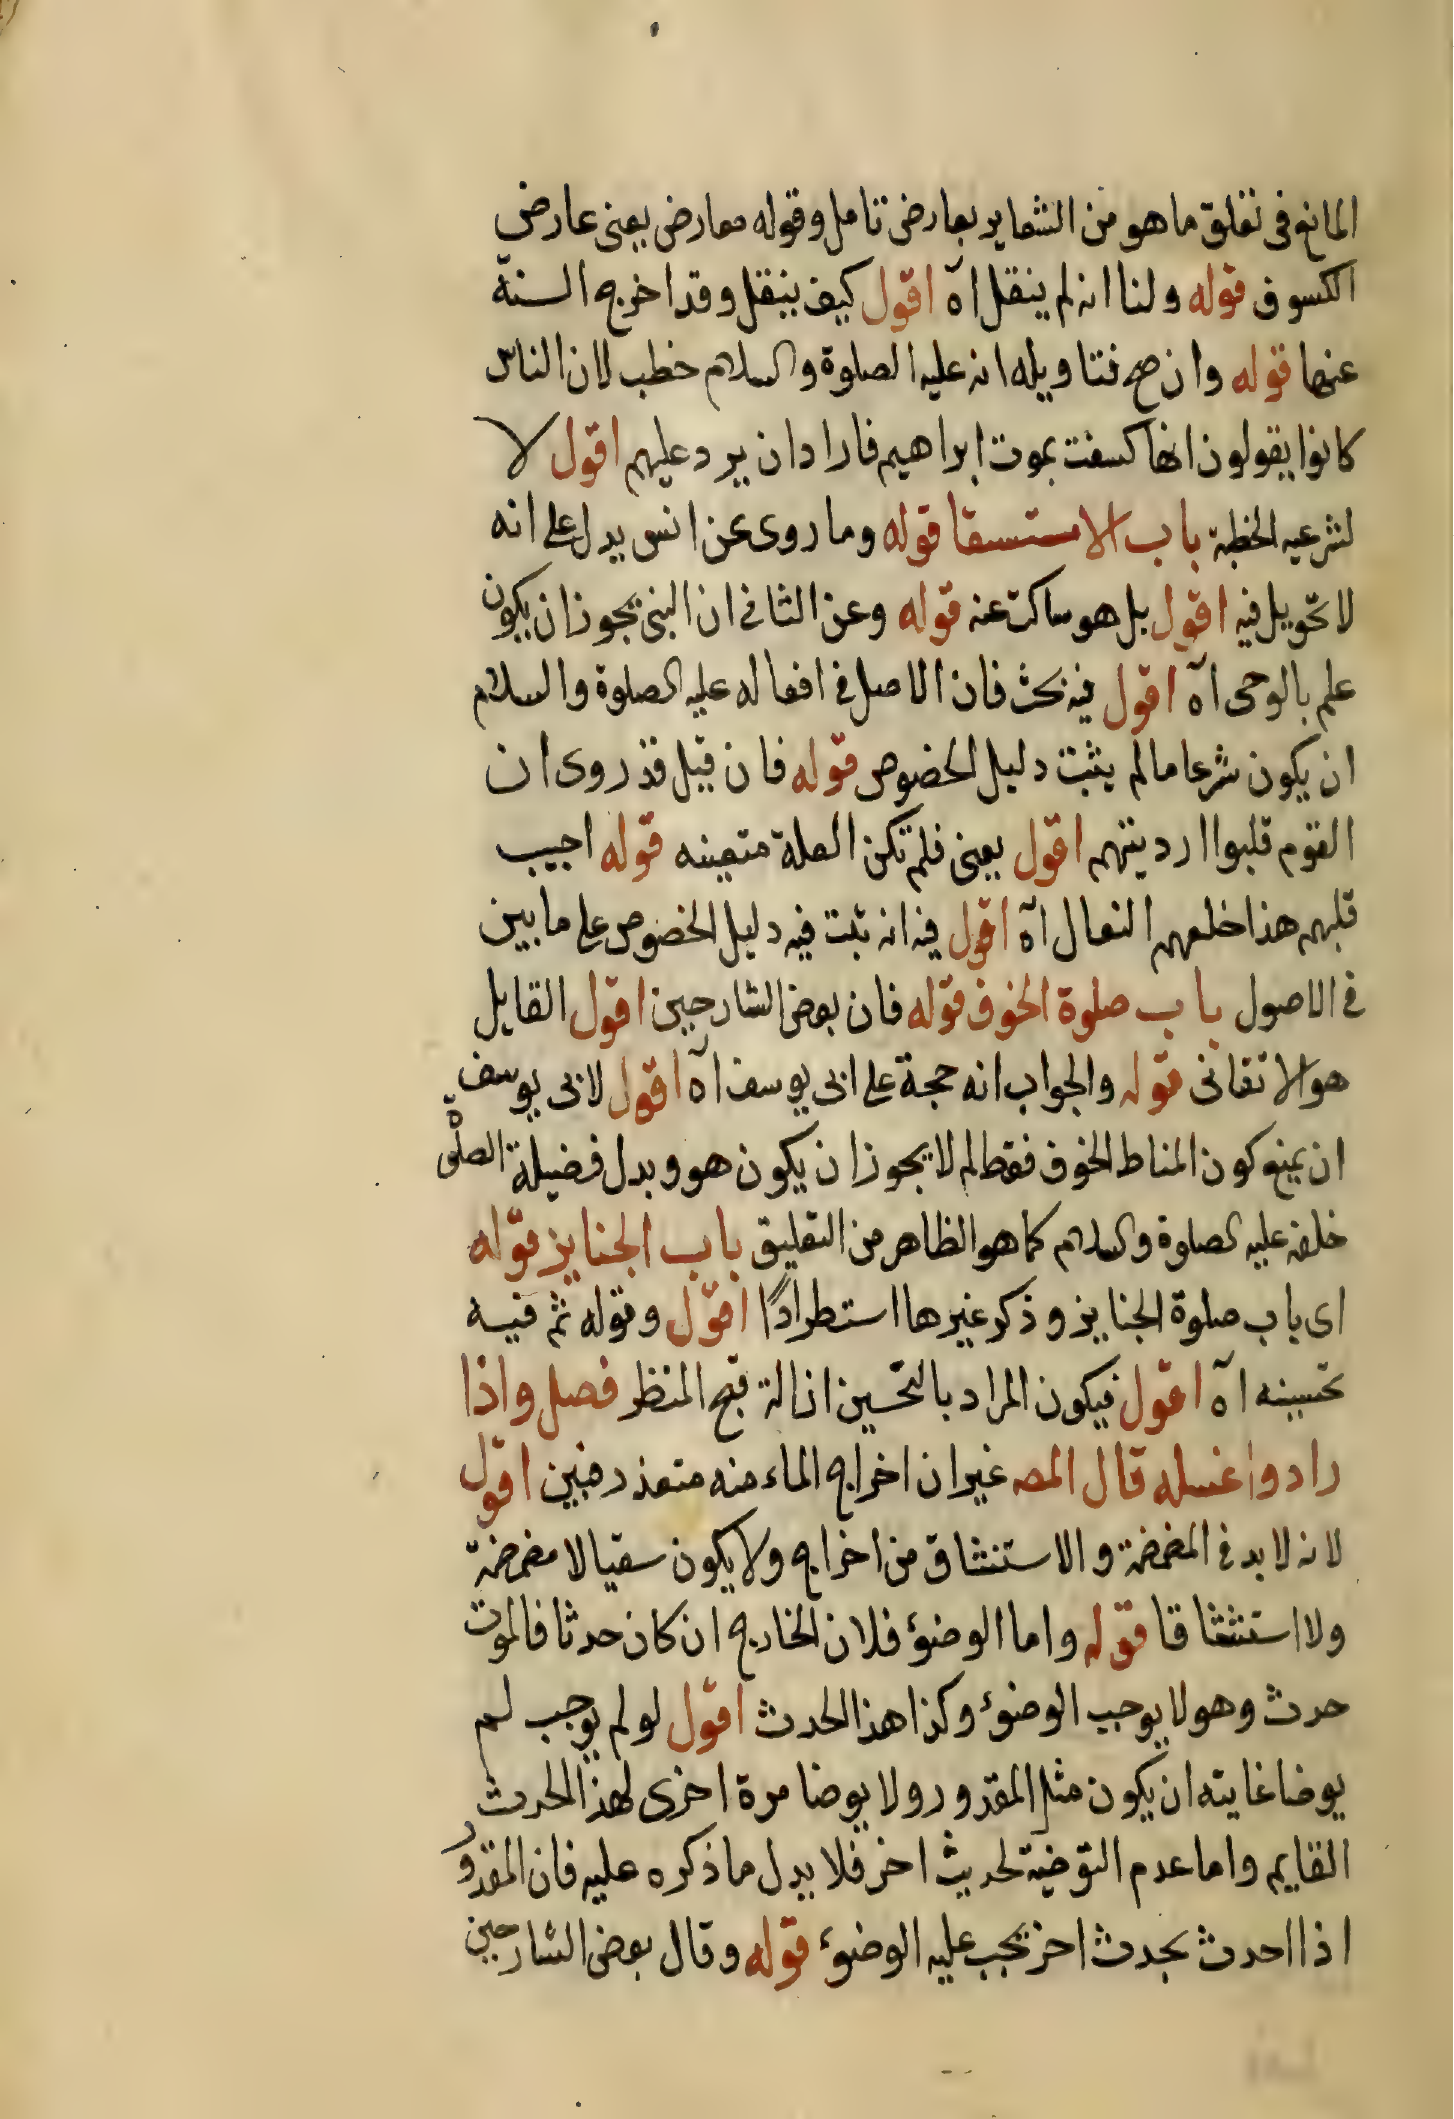 المانع في تعلق ما هو من الشعاير بعارض تامل وقوله معارض يعني عارض
الكسوف قوله ولنا انه لم ينقل آه اقول كيف ينقل وقد اخرج الستة
عنها قوله وان صح فتاويله انه عليه الصلوة والسلام خطب لان الناس
كانوا يقولون انها كسفت بموت ابراهيم فاراد ان يرد عليهم اقول لا
لشرعيه الخطبة باب الاستسقا قوله وما روى عن انس يدل على انه
لا تحويل فيه اقول بل هو ساكت عنه قوله وعن الثاني ان النبي يجوز ان يكون
علم بالوحى آه اقول فيه بحث فان الاصل في افعاله عليه الصلوة والسلام
ان يكون شرعا ما لم يثبت دليل الخضوص قوله فان قيل قد روى ان
القوم قلبوا ارديتهم اقول يعني فلم تكن العلة متعينه قوله اجيب
قلبهم هذا خلعهم النعال آه اقول فيه انه ثبت فيه دليل الخصوص على ما بين
في الاصول باب صلوة الخوف قوله فان بعض الشارحين اقول القايل
هو الاتقانى قوله والجواب انه حجة على ابى يوسف آه اقول لابى يوسف
ان يمنع كون المناط الخوف فقط لم لا يجوز ان يكون هو وبدل فضيلة الصلوة
خلفه عليه الصلوة والسلام كما هو الظاهر من التعليق باب الجنايز قوله
اى باب صلوة الجنايز وذكر غيرها استطرادًا اقول وقوله ثم فيه
تحسينه آه اقول فيكون المراد بالتحسين ازالة قبح المنظر فصل واذا
رادوا غسله قال المص غير ان اخراج الماء منه متعذر فبين اقول
لانه لا بد في المضمضة والاستنشاق من اخراج ولا يكون سقيا لا مضمضة
ولا استنشاقا قوله واما الوضوٴ فلان الخارج ان كان حدثا فالموت
حدث وهو لا يوجب الوضوٴ وكذا هذا الحدث اقول لو لم يوجب لم
يوضا غايته ان يكون مثل المقدور ولا يوضا مرة اخرى لهذا الحدث
القايم واما عدم التوضية لحديث اخر فلا يدل ما ذكره عليه فان المقدور
اذا احدث بحدث اخر يجب عليه الوضوٴ قوله وقال بعض الشارحين